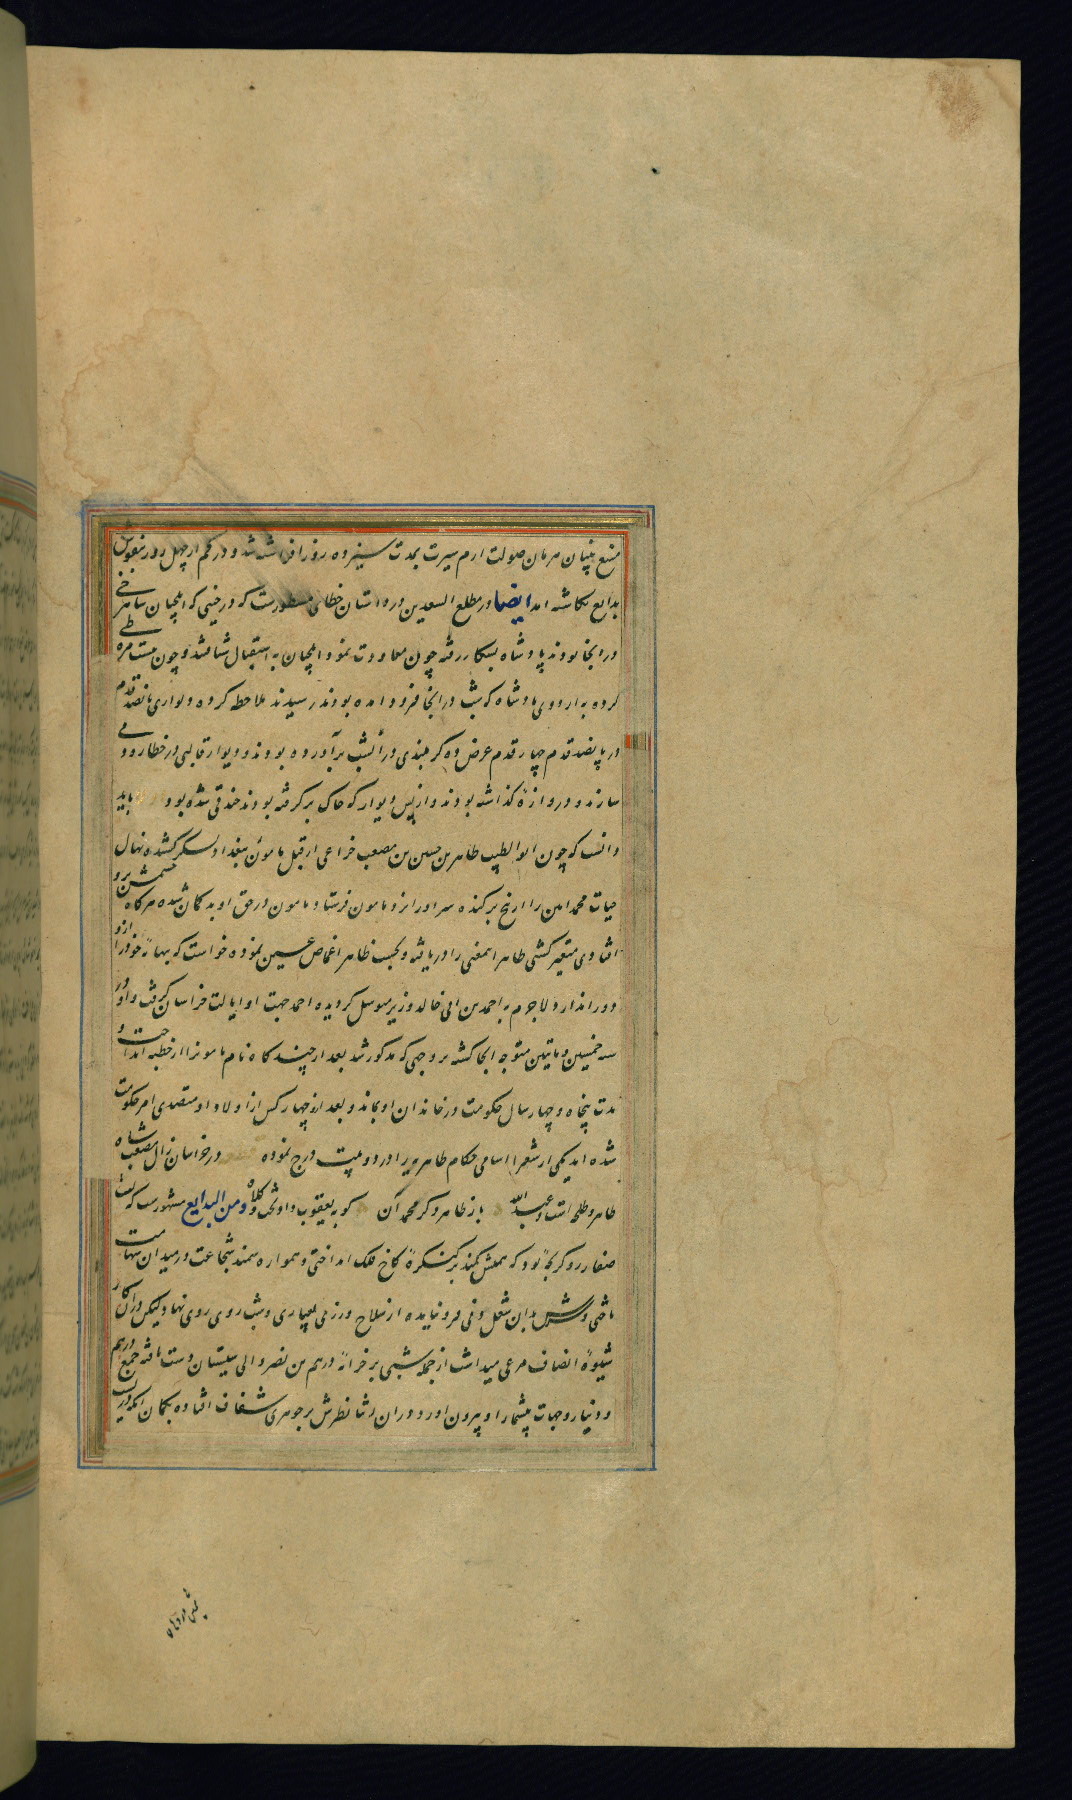 منیع بنیان هرمان صولت ارم سیرت بمدت سیزده روز افراشته شد و در کم از چهل روز بنقوش
بدایع نکاشته امد ایضا در مطلع السعدین در داستان خطای مسطورست که در حینی که ایلچیان شاهرخی
در انجا بودند پادشاه بشکار رفته چون معاودت نمود ایلچیان به استقبال شتافتند و چون مسافت طی
کرده به اردوی پادشاه که شب در انجا فرود امده بودند رسیدند ملاحظه کرده دیواری پانصد قدم
در پانصد قدم چهار قدم عرض ده کز بلندی در آنشب برآورده بودند و دیوار قالبی در خطا زود می
سازند و دروازه کذاشته بودند و از پس دیوار که خاک برکرفته بودند خندقی شده بود باید
دانست که چون ابوالطیب طاهر بن حسین بن مصعب خزاعی از قبل مامون ببغداد لشکر کشیده نهال
حیات محمد امین را از بیخ برکنده سر او را نزد مامون فرستاد مامون در حق او بدکمان شده هرکاه چشمش برو
افتادی متغیر کشتی طاهر اینمعنی را دریافته و بحسب ظاهر اغماض عین نموده خواست که ببهانه خود را ازو
دور اندازد لاجرم به احمد بن ابی خالد وزیر متوسل کردیده احمد جهت او ایالت خراسان کرفت و او در
سنه خمسین و ماتین متوجه انجا کشته بر وجهی که مذکور شد بعد از چند کاه نام مامونرا از خطبه انداخت و
مدت پنجاه و چهار سال حکومت در خاندان او بماند و بعد ازو چهار کس از اولاد او متصدی امر حکومت
شده اند یکی از شعرا اسامی حکام طاهریه را در دو بیت درج نموده در خراسان ز ال مصعب شاه
طاهر و طلحه است و عبدالله باز طاهر دکر محمد آن کو به یعقوب داد تخت و کلاه ومن البدایع مشهورست که لیث
صفار رو کر بچه بود که همتش کمند بر کنکره کاخ فلک انداختی و همواره سمند شجاعت در میدان شهامت
تاختی و سرش بدان شغل دنی فرو نیامده از سلاح ورزی بعیاری و شب روی روی نهاد لیکن در ان کار
شیوه انصاف مرعی میداشت از جمله شبی بر خزانه درهم بن نصر والی سیستان دست یافته جمیع درهم
و دینار و جهات بیشمار او بیرون اورد و در ان اثنا نظرش بر جوهری شفاف افتاده بکمان انکه در